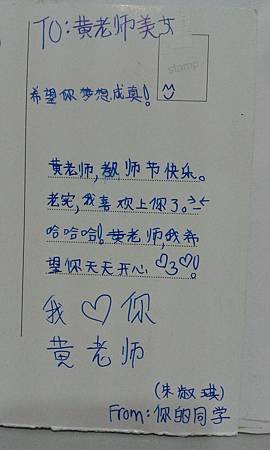 TO:黄老师美女
stamp
希望你梦想成真!
黄老师,教师节快乐。
老实,我喜欢上你了。
哈哈哈!黄老师,我希
望你天天开心♡3♡!
我♡你
黄老师
(朱淑琪)
From:你的同学